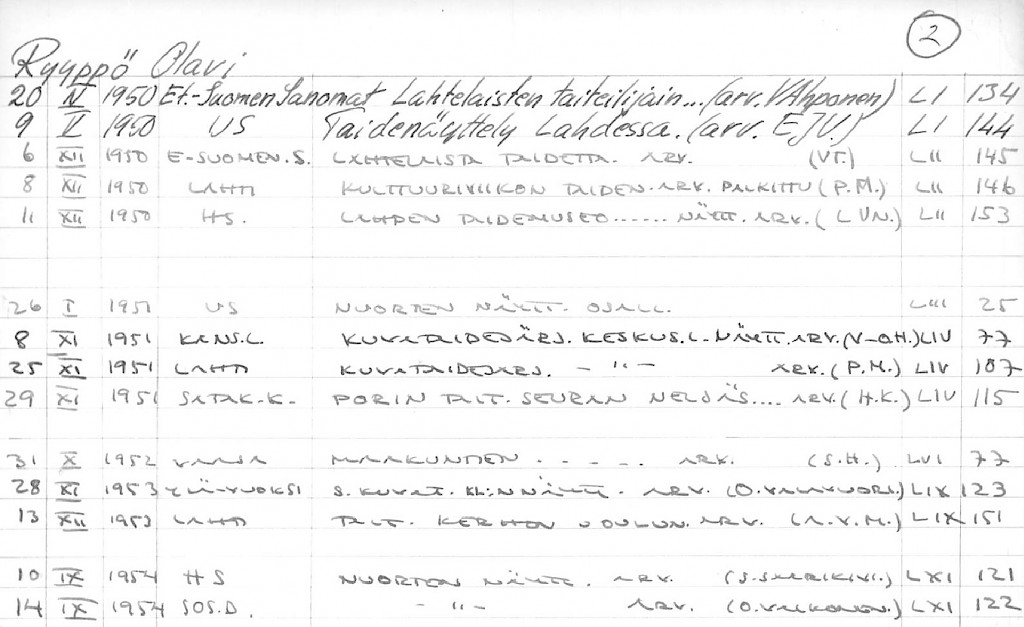 2
Ryyppö Olavi
20 IV 1950 Et.-Suomen Sanomat Lahtelaisten taiteilijain... (arv. VAhponen) LI 134
9 V 1950 US Taidenäyttely Lahdessa. (arv. E.J.V.) LI 144
6 XII 1950 E-SUOMEN.S. LAHTELAISTA TAIDETTA. ARV. (VT.) LII 145
8 XII 1950 LAHTI KULTTUURIVIIKON TAIDEN. ARV. PALKITTU (P.M.) LII 146
11 XII 1950 HS. LAHDEN TAIDEMUSEO...... NÄYTT. ARV. (LVN.) LII 153
26 I 1951 US NUORTEN NÄYTT. OSALL. LIII 25
8 XI 1951 KANS.L. KUVATAIDEJÄRJ. KESKUS.L-NÄYTT. ARV. (V-O.H.) LIV 77
25 XI 1951 LAHTI KUVATAIDEJÄRJ. - " - ARV. (P.M.) LIV 107
29 XI 1951 SATAK-K. PORIN TAIT. SEURAN NELJÄS.... ARV. (H.K.) LIV 115
31 X 1952 VAASA MAAKUNTIEN - - - . . ARV. (S.H.) LVI 77
28 XI 1953 YLÄ-VUOKSI S. KUVAT. KL:N NÄYTT. ARV. LIX 123
13 XII 1953 LAHTI TAIT. KERHON JOULUN. ARV. (A.V.M.) LIX 151
10 IX 1954 HS NUORTEN NÄYTT. ARV. (S. SAARIKIVI.) LXI 121
14 IX 1954 SOS.D. - " - ARV. (O. VALKONEN.) LXI 122